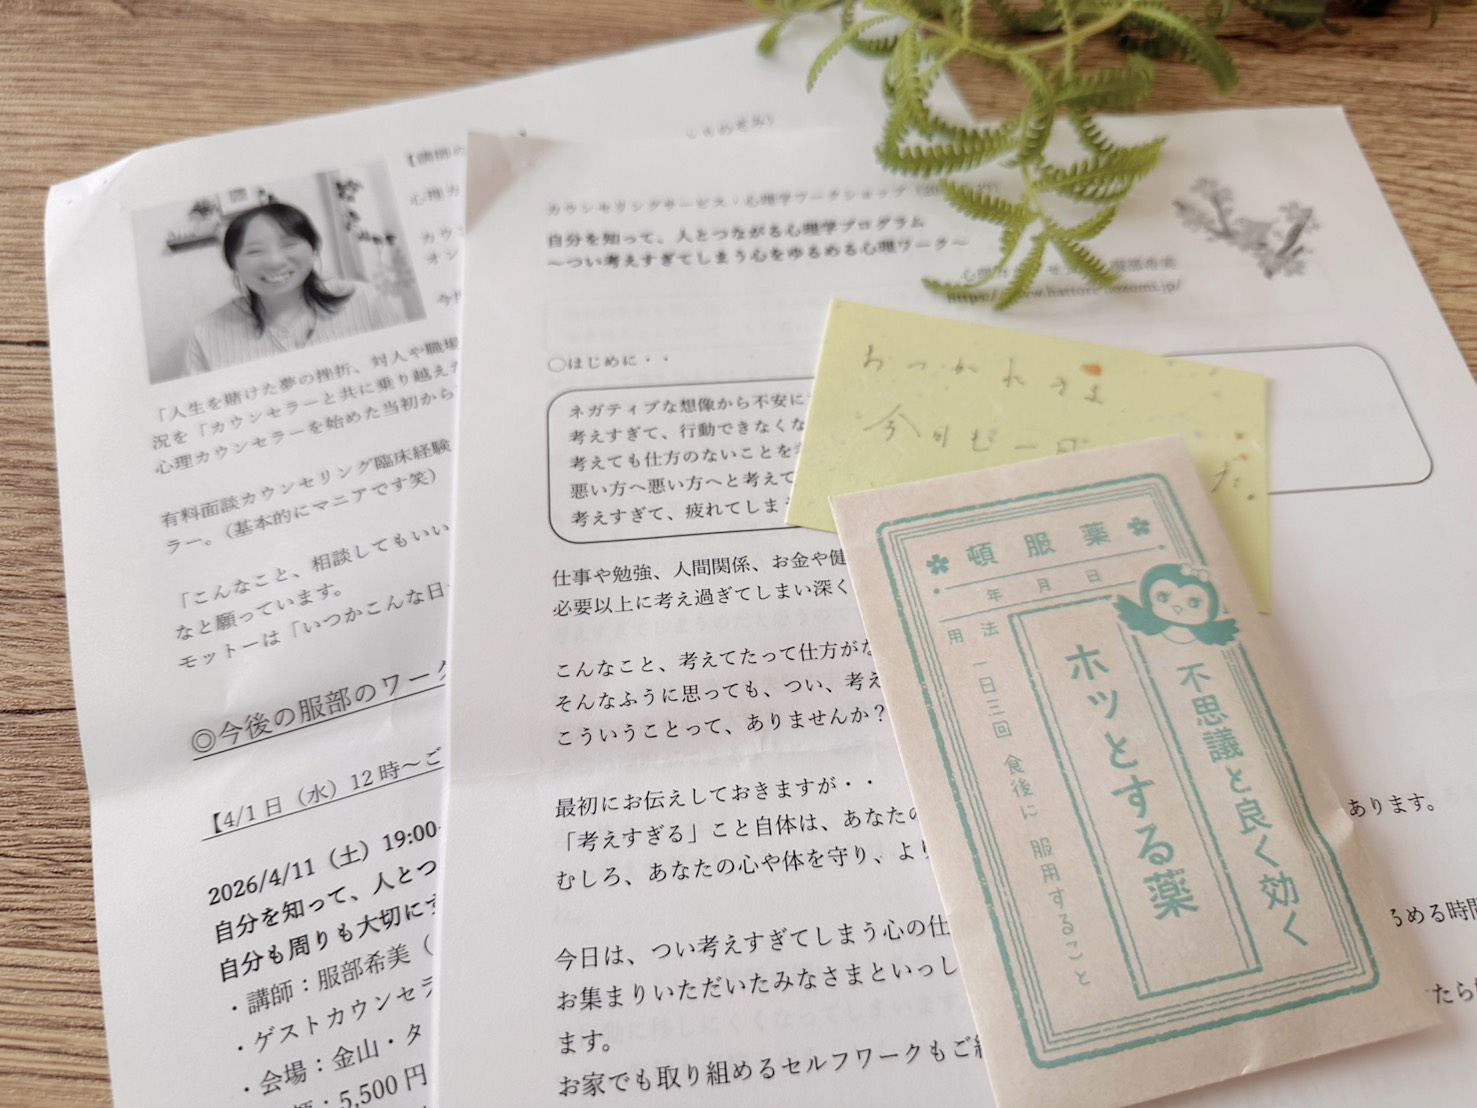 【講師の
心理カ
カウン
オン
今
「人生を賭けた夢の挫折、対人や職場
況を「カウンセラーと共に乗り越えた
心理カウンセラーを始めた当初から
有料面談カウンセリング臨床経験
ラー。（基本的にマニアです笑）
「こんなこと、相談してもいい
なと願っています。
モットーは「いつかこんな日
◎今後の服部のワーク
【4/1日（水）12時～ご
2026/4/11（土）19:00-
自分を知って、人とつ
自分も周りも大切にす
・講師：服部希美（
・ゲストカウンセラ
・会場：金山・タ
5,500円
カウンセリングサービス・心理学ワークショップ
自分を知って、人とつながる心理学プログラム
～つい考えすぎてしまう心をゆるめる心理ワーク～
服部希美
○はじめに・・
ネガティブな想像から不安に
考えすぎて、行動できなくな
考えても仕方のないことを
悪い方へ悪い方へと考えて
考えすぎて、疲れてしま
仕事や勉強、人間関係、お金や健
必要以上に考え過ぎてしまい深く
こんなこと、考えてたって仕方がな
そんなふうに思っても、つい、考え
こういうことって、ありませんか？
最初にお伝えしておきますが・・
「考えすぎる」こと自体は、あなたの
あります。
むしろ、あなたの心や体を守り、より
今日は、つい考えすぎてしまう心の仕
るめる時間
お集まりいただいたみなさまといっし
たら
ます。
お家でも取り組めるセルフワークもご
おつかれさま
今日も一日
た。
頓服薬
年 月 日
用法 一日三回 食後に 服用すること
不思議と良く効く
ホッとする薬